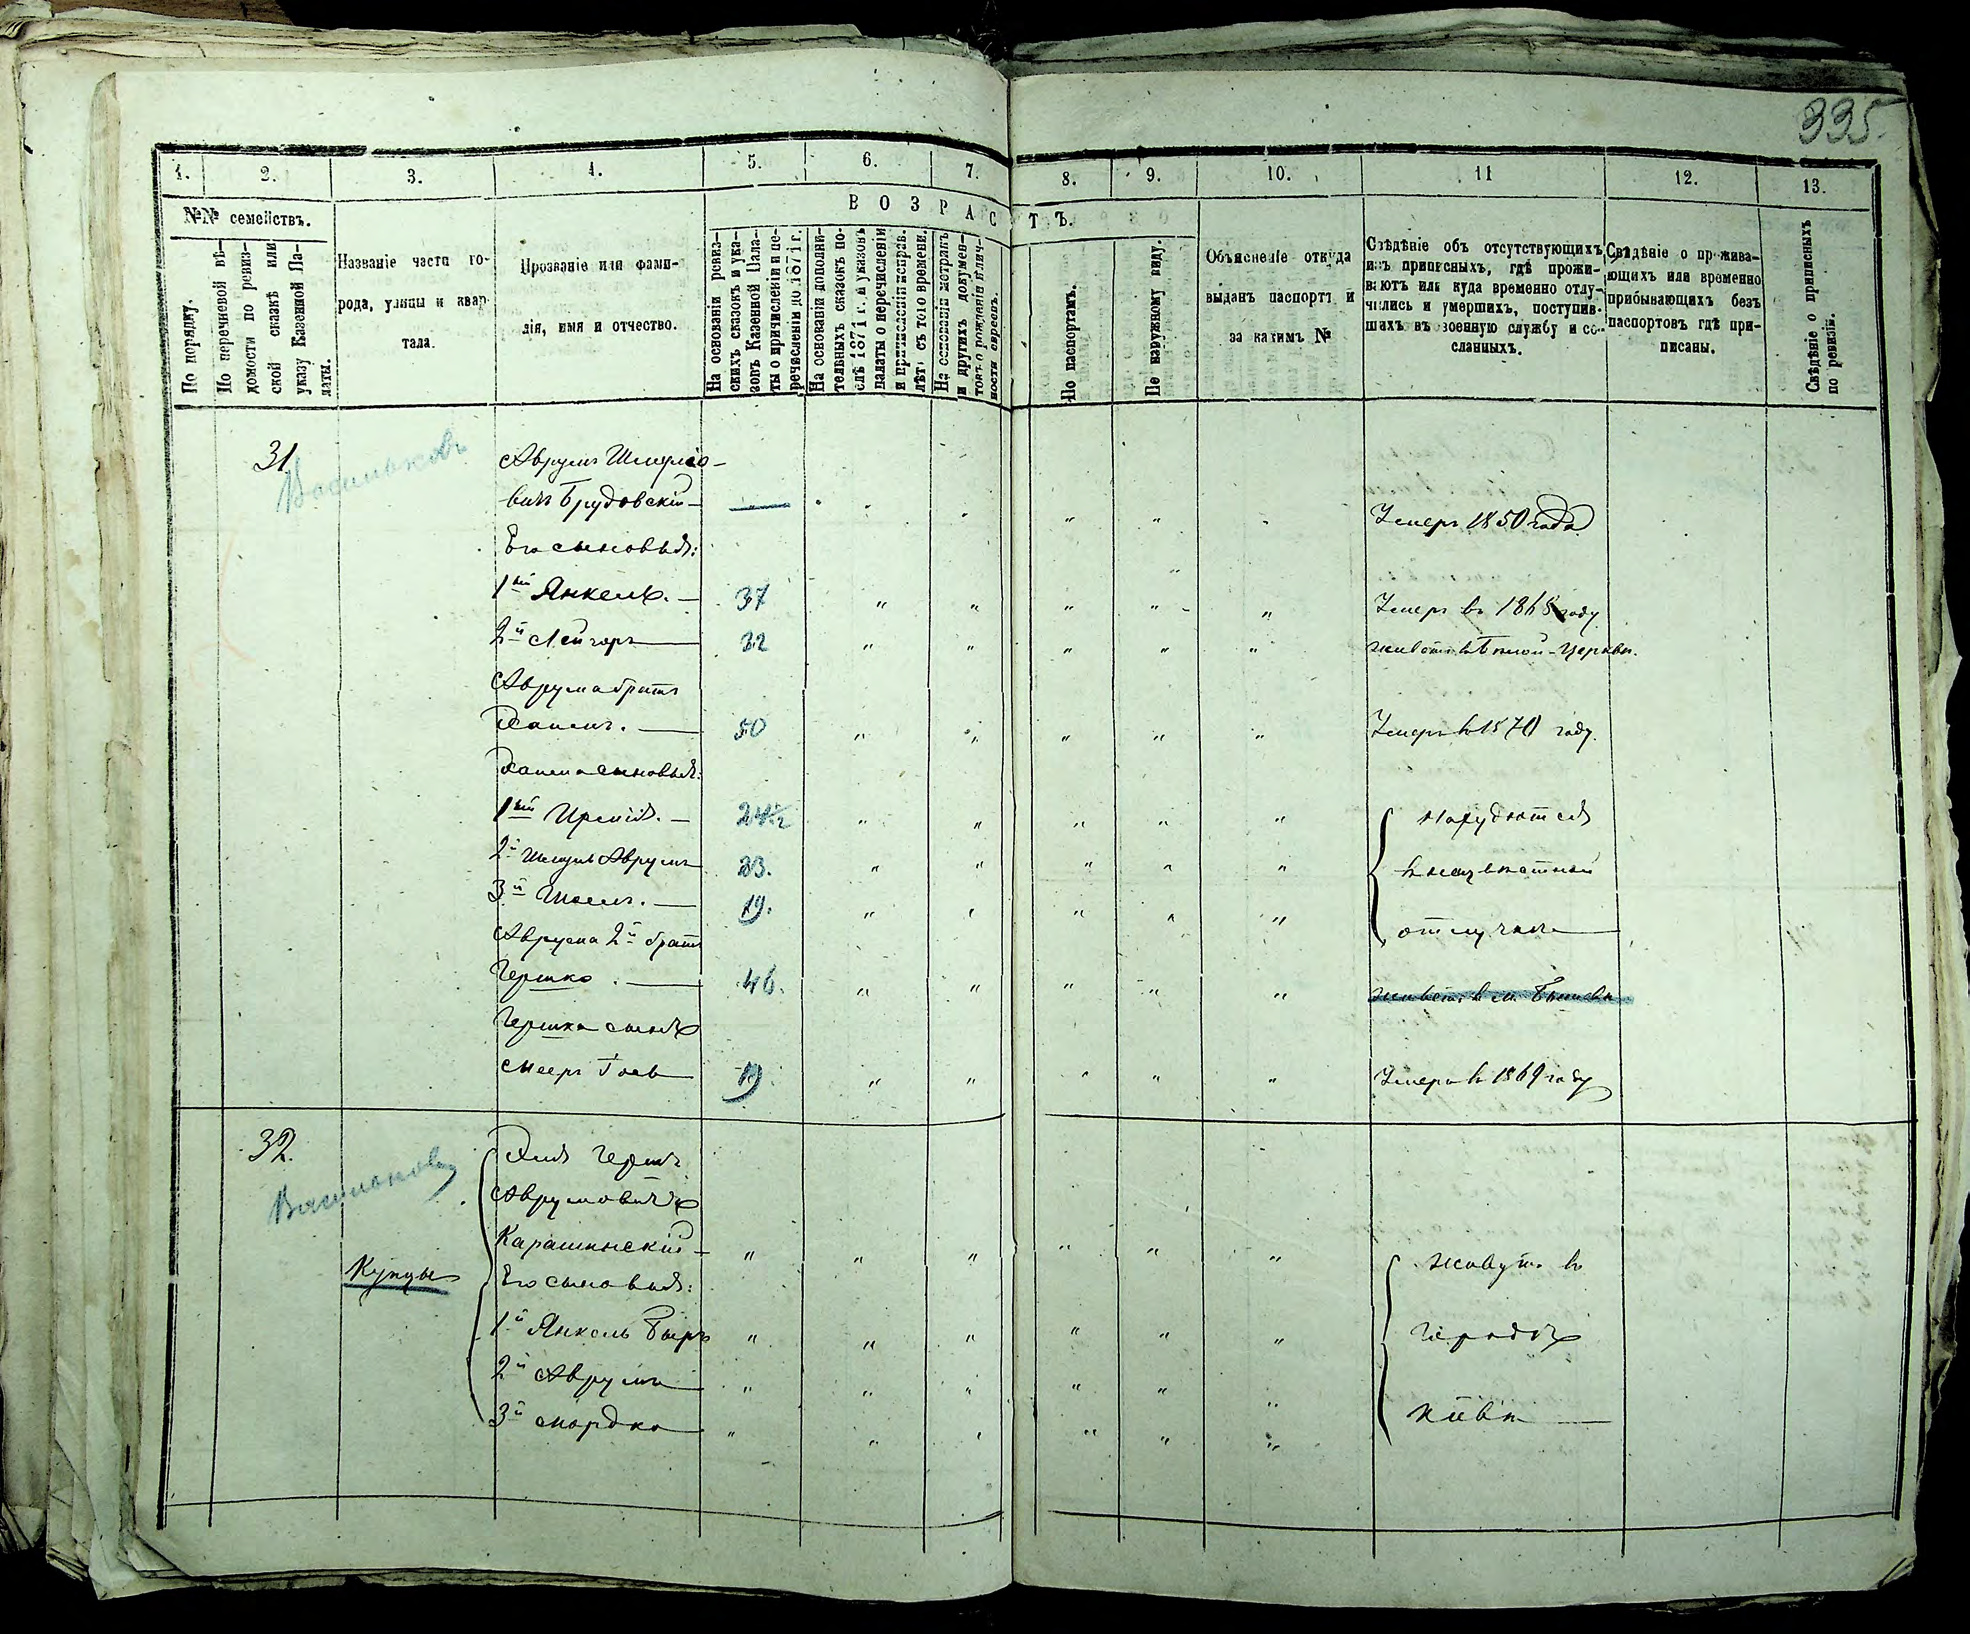 335.
1. 2. 3. 4. 5. 6. 7. 8. 9. 10. 11 12. 13.
№№ семействъ.
По порядку.
По перечневой вѣ-
домости по ревиз-
ской сказкѣ или
указу Казенной Па-
латы.
Названіе части го-
рода, улицы и квар-
тала.
Прозваніе или фами-
лія, имя и отчество.
ВОЗРАСТЪ.
На основаніи ревиз-
скихъ сказокъ и ука-
зовъ Казенной Пала-
ты о причисленіи и пе-
речисленіи до 1871 г.
На основаніи дополни-
тельныхъ сказокъ по-
слѣ 1871 г. и указовъ
палаты о перечисленіи
и причисленіи исправ.
лѣтъ съ того времени.
На основаніи метрикъ
и другихъ докумен-
товъ о рожденіи влич-
ности евреевъ.
По паспортамъ.
По наружному виду.
Объясненіе откуда
выданъ паспортъ и
за какимъ №
Свѣдѣніе объ отсутствующихъ
изъ приписныхъ, гдѣ прожи-
ваютъ или куда временно отлу-
чились и умершихъ, поступив-
шахъ въ военную службу и со-
сланныхъ.
Свѣдѣніе о прожива-
ющихъ или временно
прибывающихъ безъ
паспортовъ гдѣ при-
писаны.
Свѣдѣніе о приписныхъ
по ревизіи.
31. Васильковъ Аврумъ Шмеріо-
вичъ Брудовскій — Умеръ 1850 года
Его сыновья:
1ый Янкель. — 37 " " " " " Умеръ въ 1865 году
2й Лейзоръ — 32 " " " " " живетъ въ Бѣлой-Церкви.
Аврума братъ
Хаимъ. — 50 " " " " " Умеръ въ 1870 году.
Хаима сыновья:
1ый 24½ " " " " " находятся
2й Шмуль Аврумъ 23. " " " " " въ неизвѣстной
3й 19. " " " " " отлучкѣ
Аврума 2й братъ
Гершко. — 46. " " " " " живетъ въ м.
Гершка сынъ
Мееръ 19. " " " " " Умеръ въ 1869 году
32. Васильковъ Хаимъ Гершъ
Аврумовичъ
Карашинскій — " " " " " " живутъ въ
Купцы Его сыновья:
1й Янкель Беръ " " " " " " городѣ
2й Аврумъ " " " " " "
3й Мордко " " " " " " Кіевѣ —